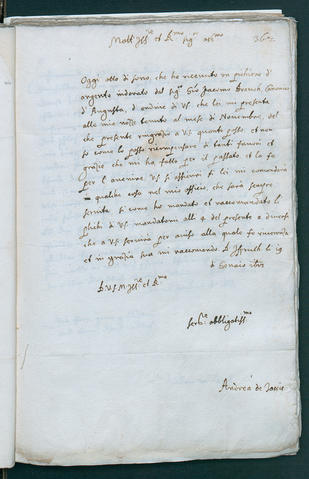 Molt Ill.re et R.mo sig.r oss.mo
362
Oggi otto di sono, che ho ricevuto un pichiere d'
argento indorato del sig.r Gio Jacomo
d'Augusta, d'ordine di VS. che lei mi presenta
alle mie nozze tenute al mese di Novembre, del
che presente ringratio a VS. quanto posso, et non
so come lo possi ricompensare di tanti favori et
gratie che mi ha fatto per il passato et la fa
per l'avenire. VS. si assicuri se lei mi comandarà
in qualche cosa nel mio officio, che sarà sempre
servita si come ho mandato et raccomandato li
plichi di VS. mandatomi alli 4 del presente a diversi
che a VS. servirà per aviso alla quale fo riverenza
et in gratia sua mi raccomando D. li 19
di Genaio
D. V.S. M. Ill.re et R.ma
ser.re obbligatiss.mo
Andrea de